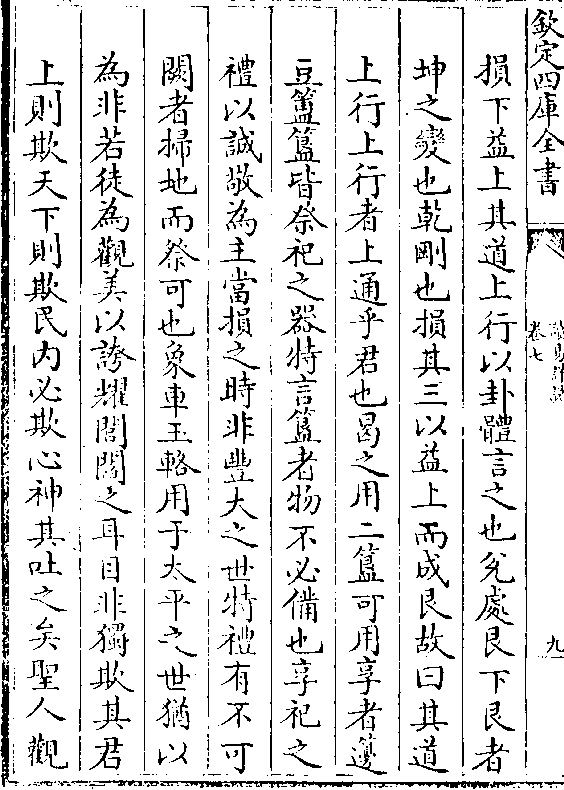 欽定四庫全書
卷七
九
損下益上其道上行以卦體言之也兊處艮下艮者
坤之變也乾剛也損其三以益上而成艮故曰其道
上行上行者上通乎君也曷之用二簋可用享者籩
豆簠簋皆祭祀之器特言簋者物不必備也享祀之
禮以誠敬為主當損之時非豐大之世特禮有不可
闕者掃地而祭可也象車玉輅用于太平之世猶以
為非若徒為觀美以誇耀閭閻之耳目非獨欺其君
上則欺天下則欺民内必欺心神其吐之矣聖人觀